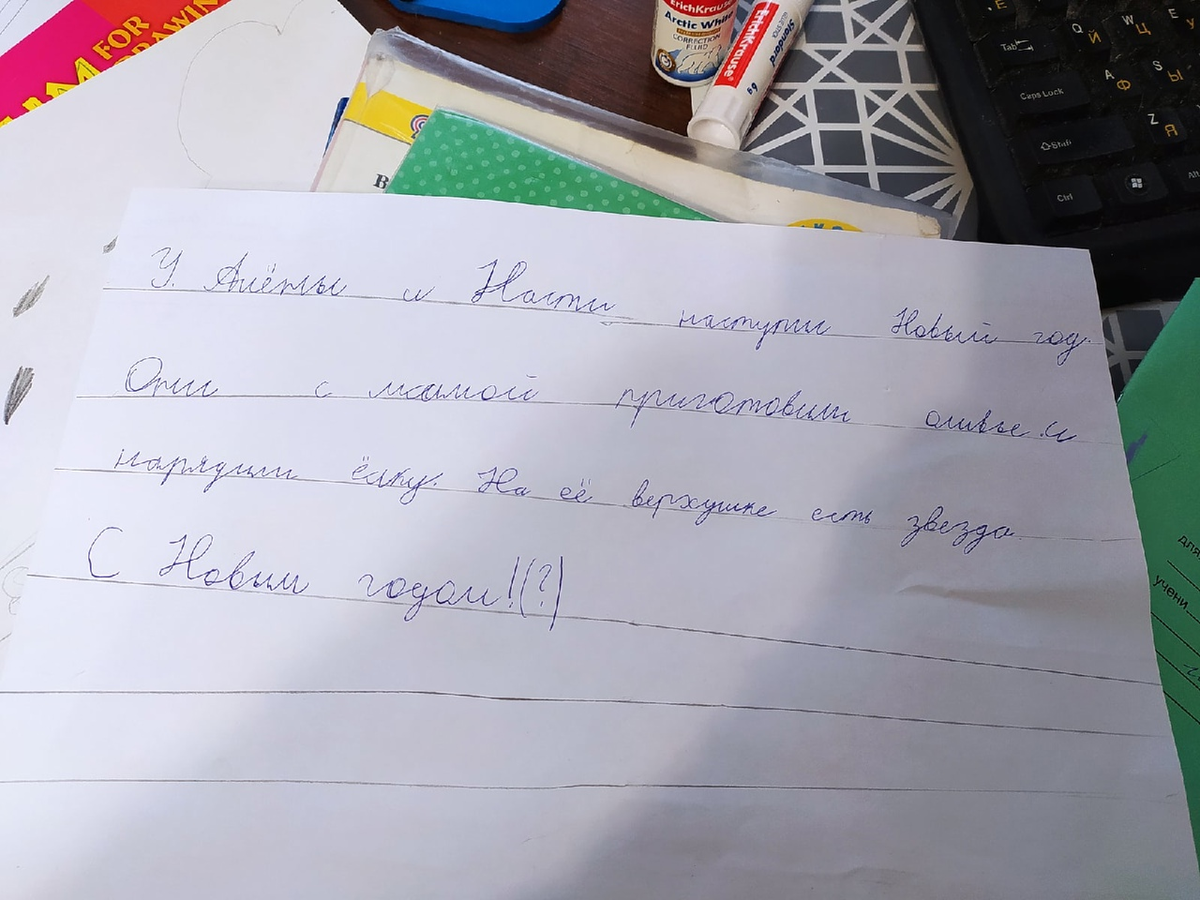 FOR
DRAWIN
ErichKrause
Arctic White
CORRECTION
FLUID
ErichKrause
Standard
Tab
Q Й
W Ц
E У
Caps Lock
A Ф
S Ы
Shift
Z Я
Ctrl
Alt
В
У Алёны и Насти наступил Новый год.
Они с мамой приготовили оливье и
нарядили ёлку. На её верхушке есть звезда
С Новым годом!(?)
для
учени